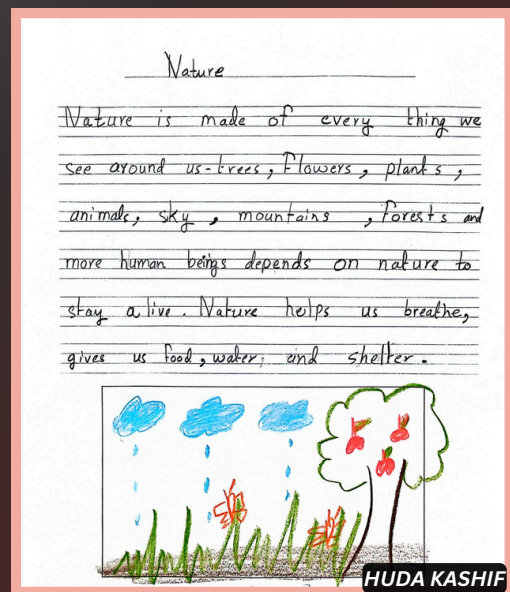 Nature
Nature is made of every thing we
see around us-trees, Flowers, plants,
animals, sky, mountains, Forests and
more human beings depends on nature to
stay alive. Nature helps us breathe,
gives us food, water, and shelter.
HUDA KASHIF